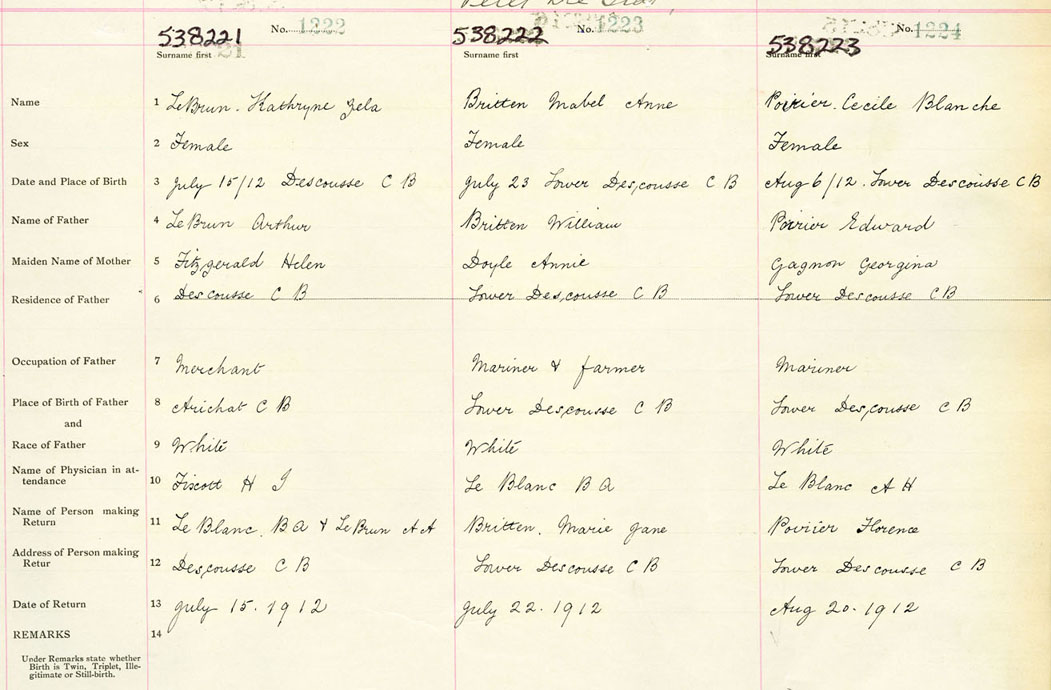 No. 1222 No. 1223 No. 1224
538221 538222 538223
Surname first Surname first Surname first
Name 1 LeBrun. Kathryne Zela Britten Mabel Anne Poirier. Cecile Blanche
Sex 2 Female Female Female
Date and Place of Birth 3 July 15/12 Descousse C B July 23 Lower Descousse C B Aug 6/12. Lower Descousse CB
Name of Father 4 LeBrun Arthur Britten William Poirier Edward
Maiden Name of Mother 5 Fitzgerald Helen Doyle Annie Gagnon Georgina
Residence of Father 6 Descousse C B Lower Descousse C B Lower Descousse C B
Occupation of Father 7 Merchant Mariner & farmer Mariner
Place of Birth of Father 8 Arichat C B Lower Descousse C B Lower Descousse C B
and
Race of Father 9 White White White
Name of Physician in at-
tendance 10 H Le Blanc B A Le Blanc A H
Name of Person making
Return 11 Le Blanc. B A & LeBrun A A Britten. Marie Jane Poirier Florence
Address of Person making
Retur 12 Descousse C B Lower Descousse C B Lower Descousse C B
Date of Return 13 July 15. 1912 July 22. 1912 Aug 20. 1912
REMARKS 14
Under Remarks state whether
Birth is Twin, Triplet, Ille-
gitimate or Still-birth.